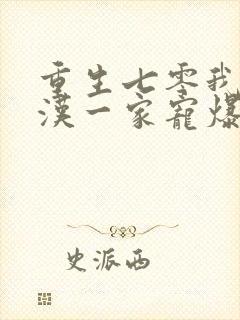 重生七零我
汉一家宠爆
史派西